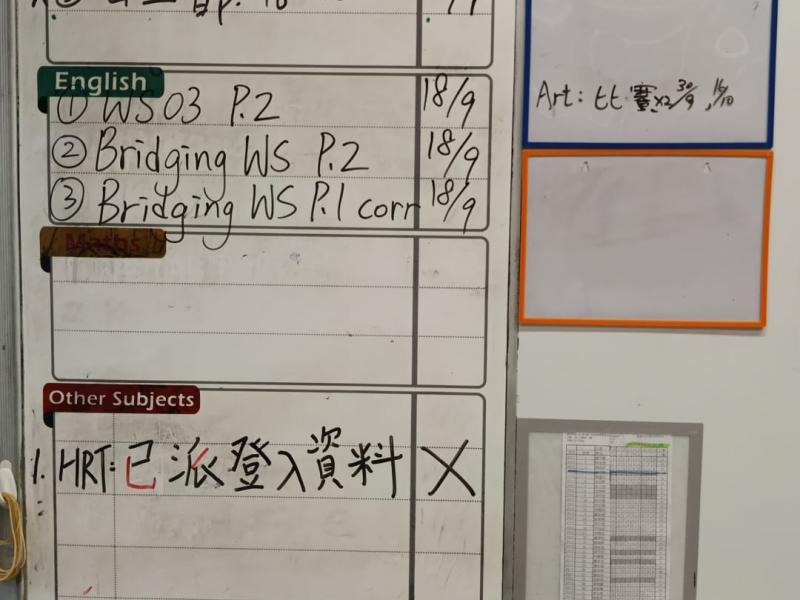 English
① WS03 P.2 18/9
② Bridging WS P.2 18/9
③ Bridging WS P.1 corr 18/9
Maths
Other Subjects
1. HRT: 已派登入資料 X
Art: 比賽x2 30/9, 15/10